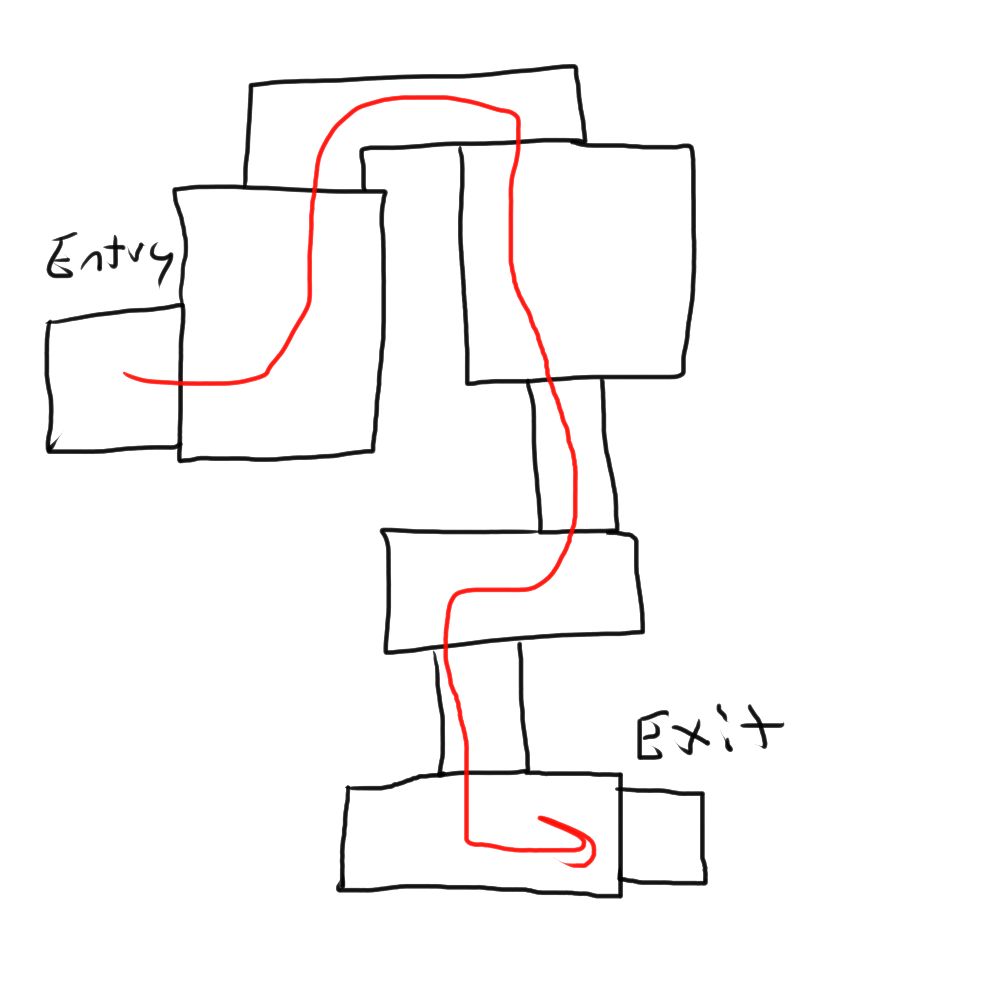 Entry
Exit